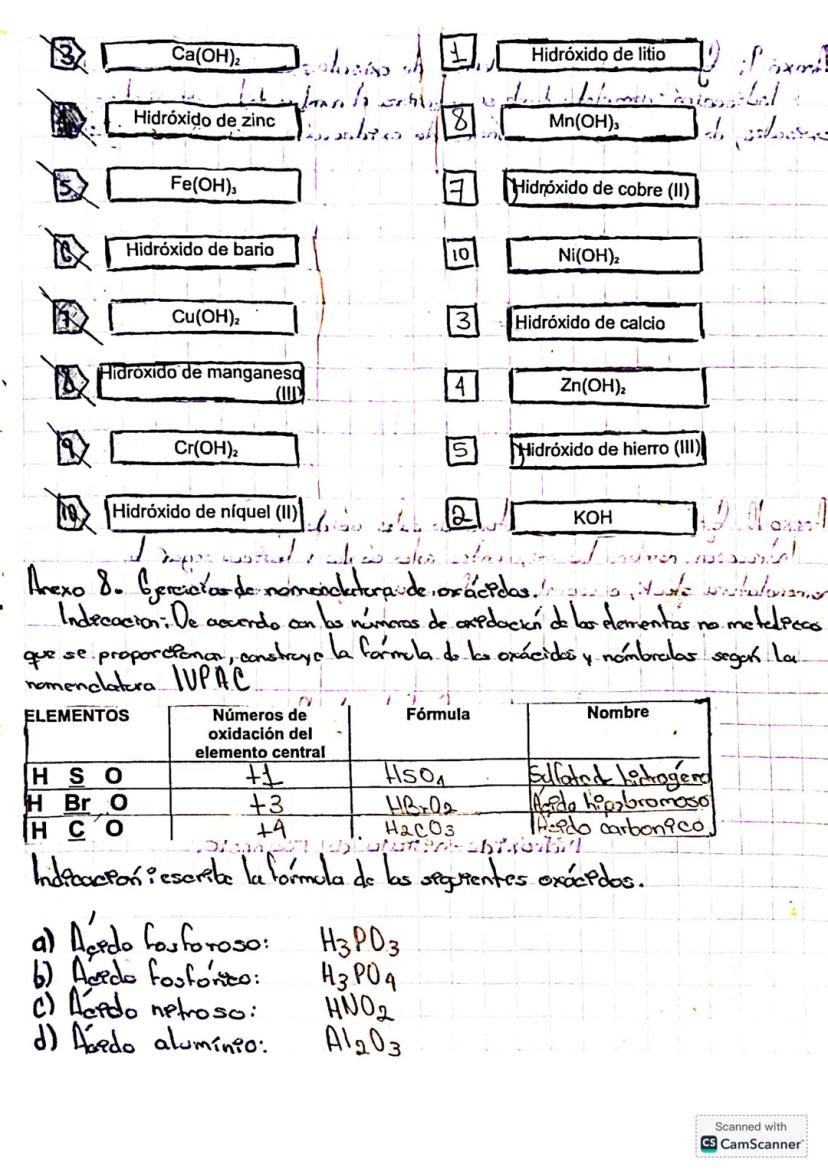 3 Ca(OH)₂ 1 Hidróxido de litio
4 Hidróxido de zinc 8 Mn(OH)₃
5 Fe(OH)₃ 7 Hidróxido de cobre (II)
6 Hidróxido de bario 10 Ni(OH)₂
7 Cu(OH)₂ 3 Hidróxido de calcio
8 Hidróxido de manganeso (III) 4 Zn(OH)₂
9 Cr(OH)₂ 5 Hidróxido de hierro (III)
10 Hidróxido de níquel (II) 2 KOH
Anexo 8. Ejercicios de nomenclatura de oxácidos.
Indicación: De acuerdo con los números de oxidación de los elementos no metálicos
que se proporcionan, construye la fórmula de los oxácidos y nómbralos según la
nomenclatura IUPAC
ELEMENTOS Números de oxidación del elemento central Fórmula Nombre
H S O +1 HSO4 Sulfato de hidrógeno
H Br O +3 HBrO2 Ácido hipobromoso
H C O +4 H2CO3 Ácido carbonico
Indicación: escribe la fórmula de los siguientes oxácidos.
a) Ácido fosforoso: H3PO3
b) Ácido fosfórico: H3PO4
c) Ácido nitroso: HNO2
d) Ácido alumínio: Al2O3
Scanned with
CS CamScanner